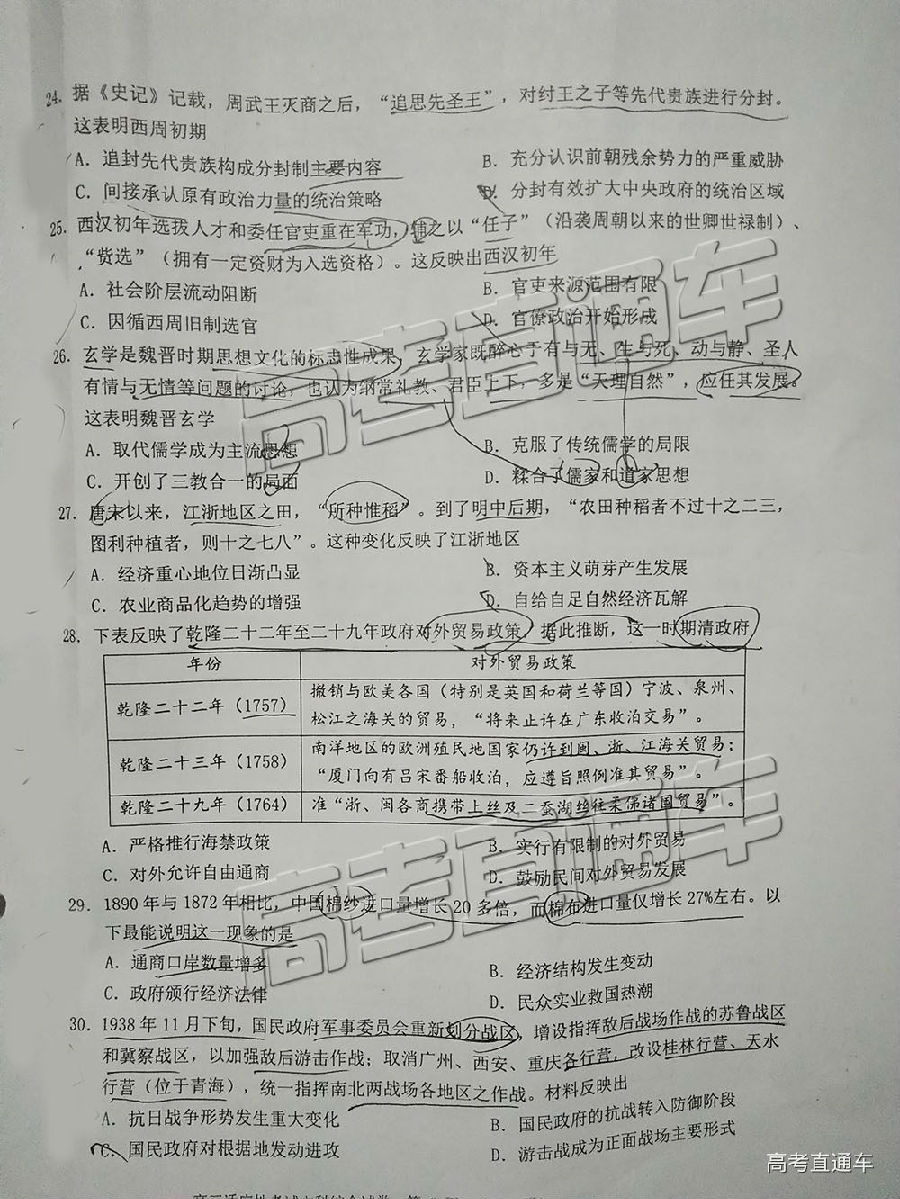 24. 据《史记》记载，周武王灭商之后，“追思先圣王”，对纣王之子等先代贵族进行分封。
这表明西周初期
A. 追封先代贵族构成分封制主要内容 B. 充分认识前朝残余势力的严重威胁
C. 间接承认原有政治力量的统治策略 D. 分封有效扩大中央政府的统治区域
25. 西汉初年选拔人才和委任官吏重在军功，辅之以“任子”（沿袭周朝以来的世卿世禄制）、
“赀选”（拥有一定资财为入选资格）。这反映出西汉初年
A. 社会阶层流动阻断 B. 官吏来源范围有限
C. 因循西周旧制选官 D. 官僚政治开始形成
26. 玄学是魏晋时期思想文化的标志性成果，玄学家既醉心于有与无、生与死、动与静、圣人
有情与无情等问题的讨论，也认为纲常礼教、君臣上下，多是“天理自然”，应任其发展。
这表明魏晋玄学
A. 取代儒学成为主流思想 B. 克服了传统儒学的局限
C. 开创了三教合一的局面 D. 糅合了儒家和道家思想
27. 唐宋以来，江浙地区之田，“所种惟稻”。到了明中后期，“农田种稻者不过十之二三，
图利种植者，则十之七八”。这种变化反映了江浙地区
A. 经济重心地位日渐凸显 B. 资本主义萌芽产生发展
C. 农业商品化趋势的增强 D. 自给自足自然经济瓦解
28. 下表反映了乾隆二十二年至二十九年政府对外贸易政策，据此推断，这一时期清政府
年份 对外贸易政策
乾隆二十二年（1757） 撤销与欧美各国（特别是英国和荷兰等国）宁波、泉州、
松江之海关的贸易，“将来止许在广东收泊交易”。
乾隆二十三年（1758） 南洋地区的欧洲殖民地国家仍许到闽、浙、江海关贸易；
“厦门向有吕宋番船收泊，应遵旨照例准其贸易”。
乾隆二十九年（1764） 准“浙、闽各商携带上丝及二蚕湖丝往柔佛诸国贸易”。
A. 严格推行海禁政策 B. 实行有限制的对外贸易
C. 对外允许自由通商 D. 鼓励民间对外贸易发展
29. 1890年与1872年相比，中国棉纱进口量增长20多倍，而棉布进口量仅增长27%左右。以
下最能说明这一现象的是
A. 通商口岸数量增多 B. 经济结构发生变动
C. 政府颁行经济法律 D. 民众实业救国热潮
30. 1938年11月下旬，国民政府军事委员会重新划分战区，增设指挥敌后战场作战的苏鲁战区
和冀察战区，以加强敌后游击作战；取消广州、西安、重庆各行营，改设桂林行营、天水
行营（位于青海），统一指挥南北两战场各地区之作战。材料反映出
A. 抗日战争形势发生重大变化 B. 国民政府的抗战转入防御阶段
C. 国民政府对根据地发动进攻 D. 游击战成为正面战场主要形式
高考直通车
高考直通车
高考直通车